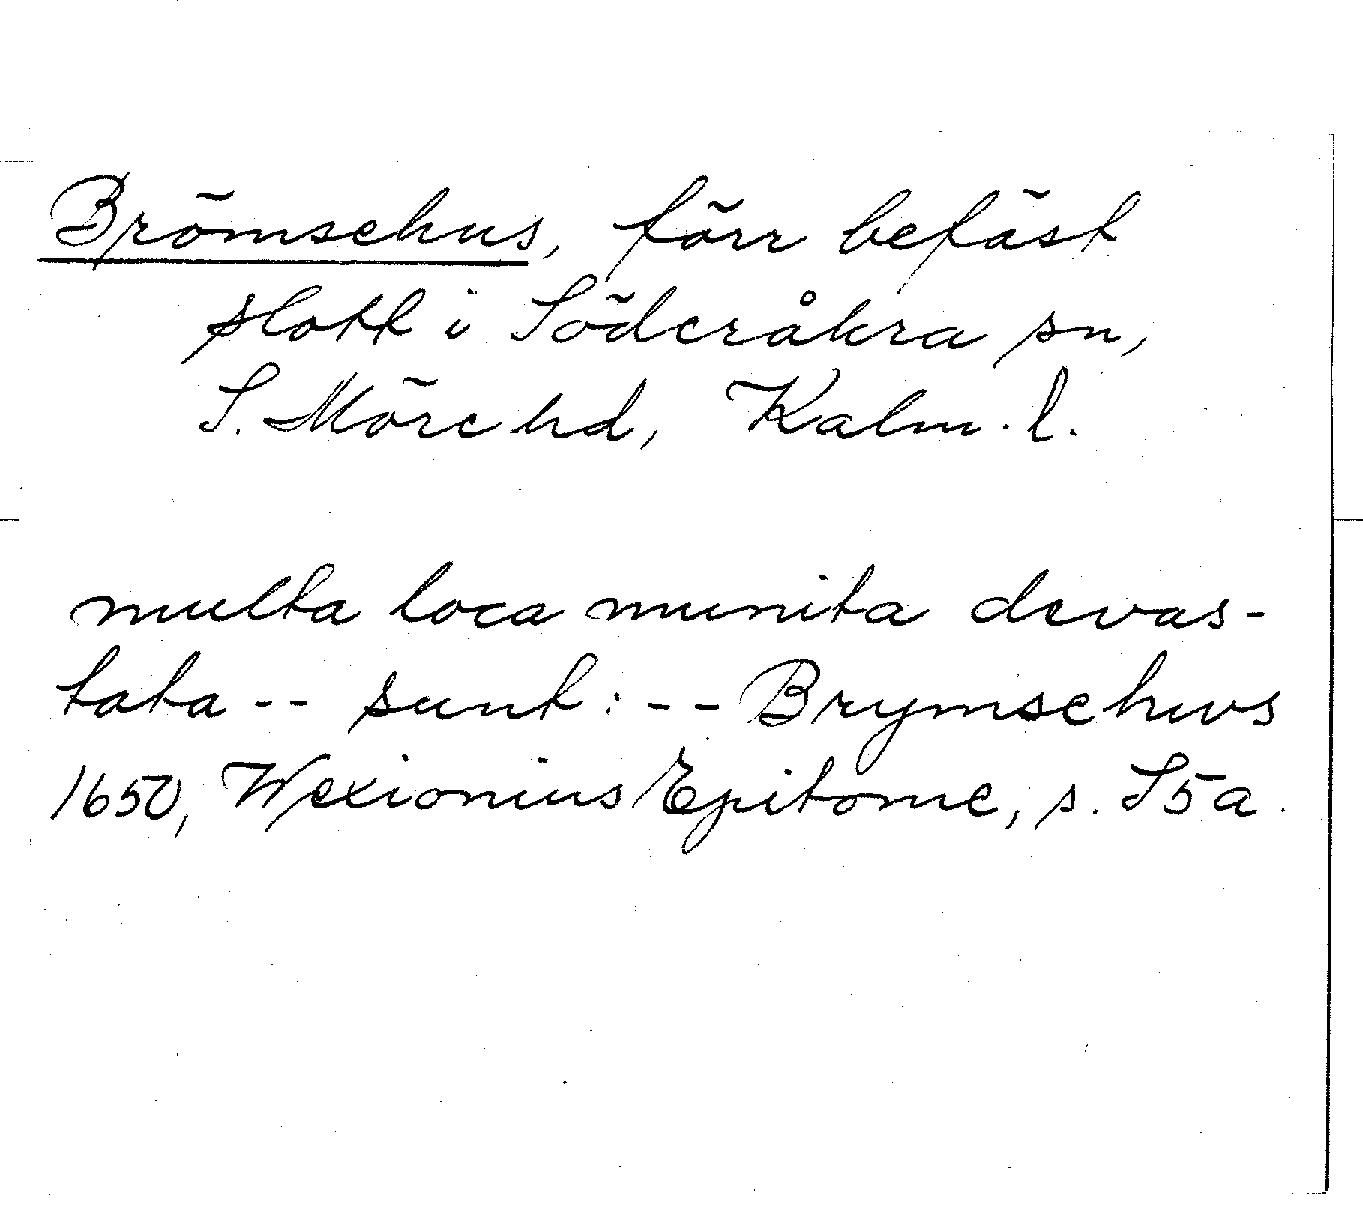 Brömsehus, förr befäst
slott i Söderåkra sn,
S. Möre hd, Kalm. l.
multa loca munita devas-
tata -- sunt: -- Brymsehws
1650, Wexionius Epitome, s. S5a.